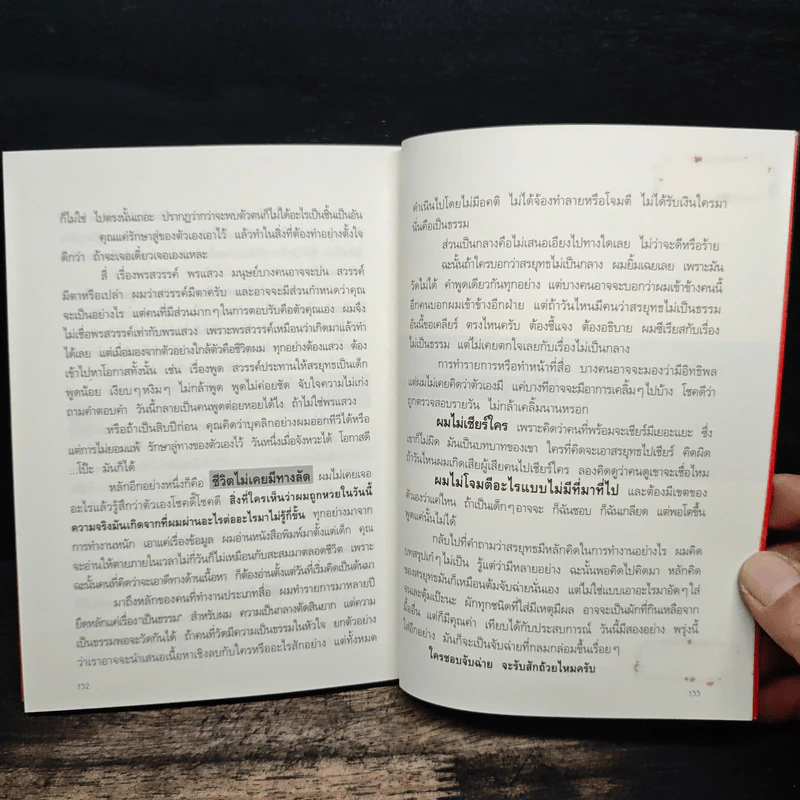 ก็ไม่ใช่ ไปตรงนั้นเถอะ ปรากฏว่ากว่าจะพบตัวตนก็ไม่ได้อะไรเป็นชิ้นเป็นอัน
คุณแค่รักษาลู่ของตัวเองเอาไว้ แล้วทำในสิ่งที่ต้องทำอย่างตั้งใจ
ดีกว่า ถ้าจะเจอเดี๋ยวเจอเองแหละ
สี่ เรื่องพรสวรรค์ พรแสวง มนุษย์บางคนอาจจะบ่น สวรรค์
มีตาหรือเปล่า ผมว่าสวรรค์มีตาครับ และอาจจะมีส่วนกำหนดว่าคุณ
จะเป็นอย่างไร แต่คนที่มีส่วนมากๆ ในการตอบรับคือตัวคุณเอง ผมจึง
ไม่เชื่อพรสวรรค์เท่ากับพรแสวง เพราะพรสวรรค์เหมือนว่าเกิดมาแล้วทำ
ได้เลย แต่เมื่อมองจากตัวอย่างใกล้ตัวคือชีวิตผม ทุกอย่างต้องแสวง ต้อง
เข้าไปหาโอกาสทั้งนั้น เช่น เรื่องพูด สวรรค์ประทานให้สรยุทธเป็นเด็ก
พูดน้อย เงียบๆ หงิมๆ ไม่กล้าพูด พูดไม่ค่อยชัด จับใจความไม่เก่ง
ถามคำตอบคำ วันนี้กลายเป็นคนพูดต่อยหอยได้ไง ถ้าไม่ใช่พรแสวง
หรือถ้าเป็นสิบปีก่อน คุณคิดว่าบุคลิกอย่างผมออกทีวีได้หรือ
แต่การไม่ยอมแพ้ รักษาลู่ทางของตัวเองไว้ วันหนึ่งเมื่อจังหวะได้ โอกาสดี
...โป๊ะ มันก็ได้
หลักอีกอย่างหนึ่งก็คือ ชีวิตไม่เคยมีทางลัด ผมไม่เคยเจอ
อะไรแล้วรู้สึกว่าตัวเองโชคดี๊โชคดี สิ่งที่ใครเห็นว่าผมถูกหวยในวันนี้
ความจริงมันเกิดจากที่ผมผ่านอะไรต่ออะไรมาไม่รู้กี่ขั้น ทุกอย่างมาจาก
การทำงานหนัก เอาแค่เรื่องข้อมูล ผมอ่านหนังสือพิมพ์มาตั้งแต่เด็ก คุณ
จะอ่านให้ตายภายในเวลาไม่กี่วันก็ไม่เหมือนกับสะสมมาตลอดชีวิต เพราะ
ฉะนั้นคนที่คิดว่าจะเอาดีทางด้านเนื้อหา ก็ต้องอ่านตั้งแต่วันที่เริ่มคิดเป็นต้นมา
มาถึงหลักของคนที่ทำงานประเภทสื่อ ผมทำรายการมาหลายปี
ยึดหลักแค่เรื่อง "เป็นธรรม" สำหรับผม ความเป็นกลางตัดสินยาก แต่ความ
เป็นธรรมพอจะวัดกันได้ ถ้าคนที่วัดมีความเป็นธรรมในหัวใจ ยกตัวอย่าง
ว่าเราอาจจะนำเสนอเนื้อหาเชิงลบกับใครหรืออะไรสักอย่าง แต่ทั้งหมด
152
ดำเนินไปโดยไม่มีอคติ ไม่ได้จ้องทำลายหรือโจมตี ไม่ได้รับเงินใครมา
นั่นคือเป็นธรรม
ส่วนเป็นกลางคือไม่เสนอเอียงไปทางใดเลย ไม่ว่าจะดีหรือร้าย
ฉะนั้นถ้าใครบอกว่าสรยุทธไม่เป็นกลาง ผมยิ้มเฉยเลย เพราะมัน
วัดไม่ได้ คำพูดเดียวกันทุกอย่าง แต่บางคนอาจจะบอกว่าผมเข้าข้างคนนี้
อีกคนบอกผมเข้าข้างอีกฝ่าย แต่ถ้าวันไหนมีคนว่าสรยุทธไม่เป็นธรรม
อันนี้ขอเคลียร์ ตรงไหนครับ ต้องชี้แจง ต้องอธิบาย ผมซีเรียสกับเรื่อง
ไม่เป็นธรรม แต่ไม่เคยตกใจเลยกับเรื่องไม่เป็นกลาง
การทำรายการหรือทำหน้าที่สื่อ บางคนอาจจะมองว่ามีอิทธิพล
แต่ผมไม่เคยคิดว่าตัวเองมี แค่บางทีอาจจะมีอาการเคลิ้มๆ ไปบ้าง โชคดีว่า
ถูกตรวจสอบรายวัน ไม่กล้าเคลิ้มนานหรอก
ผมไม่เชียร์ใคร เพราะคิดว่าคนที่พร้อมจะเชียร์มีเยอะแยะ ซึ่ง
เขาก็ไม่ผิด มันเป็นบทบาทของเขา ใครที่คิดจะเอาสรยุทธไปเชียร์ คิดผิด
ถ้าวันไหนผมเกิดเสียผู้เสียคนไปเชียร์ใคร ลองคิดดูว่าคนดูเขาจะเชื่อไหม
ผมไม่โจมตีอะไรแบบไม่มีที่มาที่ไป และต้องมีเขตของ
ตัวเองว่าแค่ไหน ถ้าเป็นเด็กๆ อาจจะ ก็ฉันชอบ ก็ฉันเกลียด แต่พอโตขึ้น
พูดแค่นั้นไม่ได้
กลับไปที่คำถามว่าสรยุทธมีหลักคิดในการทำงานอย่างไร ผมคิด
บทสรุปเก๋ๆ ไม่เป็น รู้แต่ว่ามีหลายอย่าง ฉะนั้นพอคิดไปคิดมา หลักคิด
ของสรยุทธมันก็เหมือนต้มจับฉ่ายนั่นเอง แต่ไม่ใช่แบบเอาอะไรมาอัดๆ ใส่
จนตุ้งเป๊ะนะ ผักทุกชนิดที่ใส่มีเหตุมีผล อาจจะเป็นผักที่กินเหลือจาก
มื้ออื่น แต่ก็มีคุณค่า เทียบได้กับประสบการณ์ วันนี้มีสองอย่าง พรุ่งนี้
ใส่อีกอย่าง มันก็จะเป็นจับฉ่ายที่กลมกล่อมขึ้นเรื่อยๆ
ใครชอบจับฉ่าย จะรับสักถ้วยไหมครับ
153